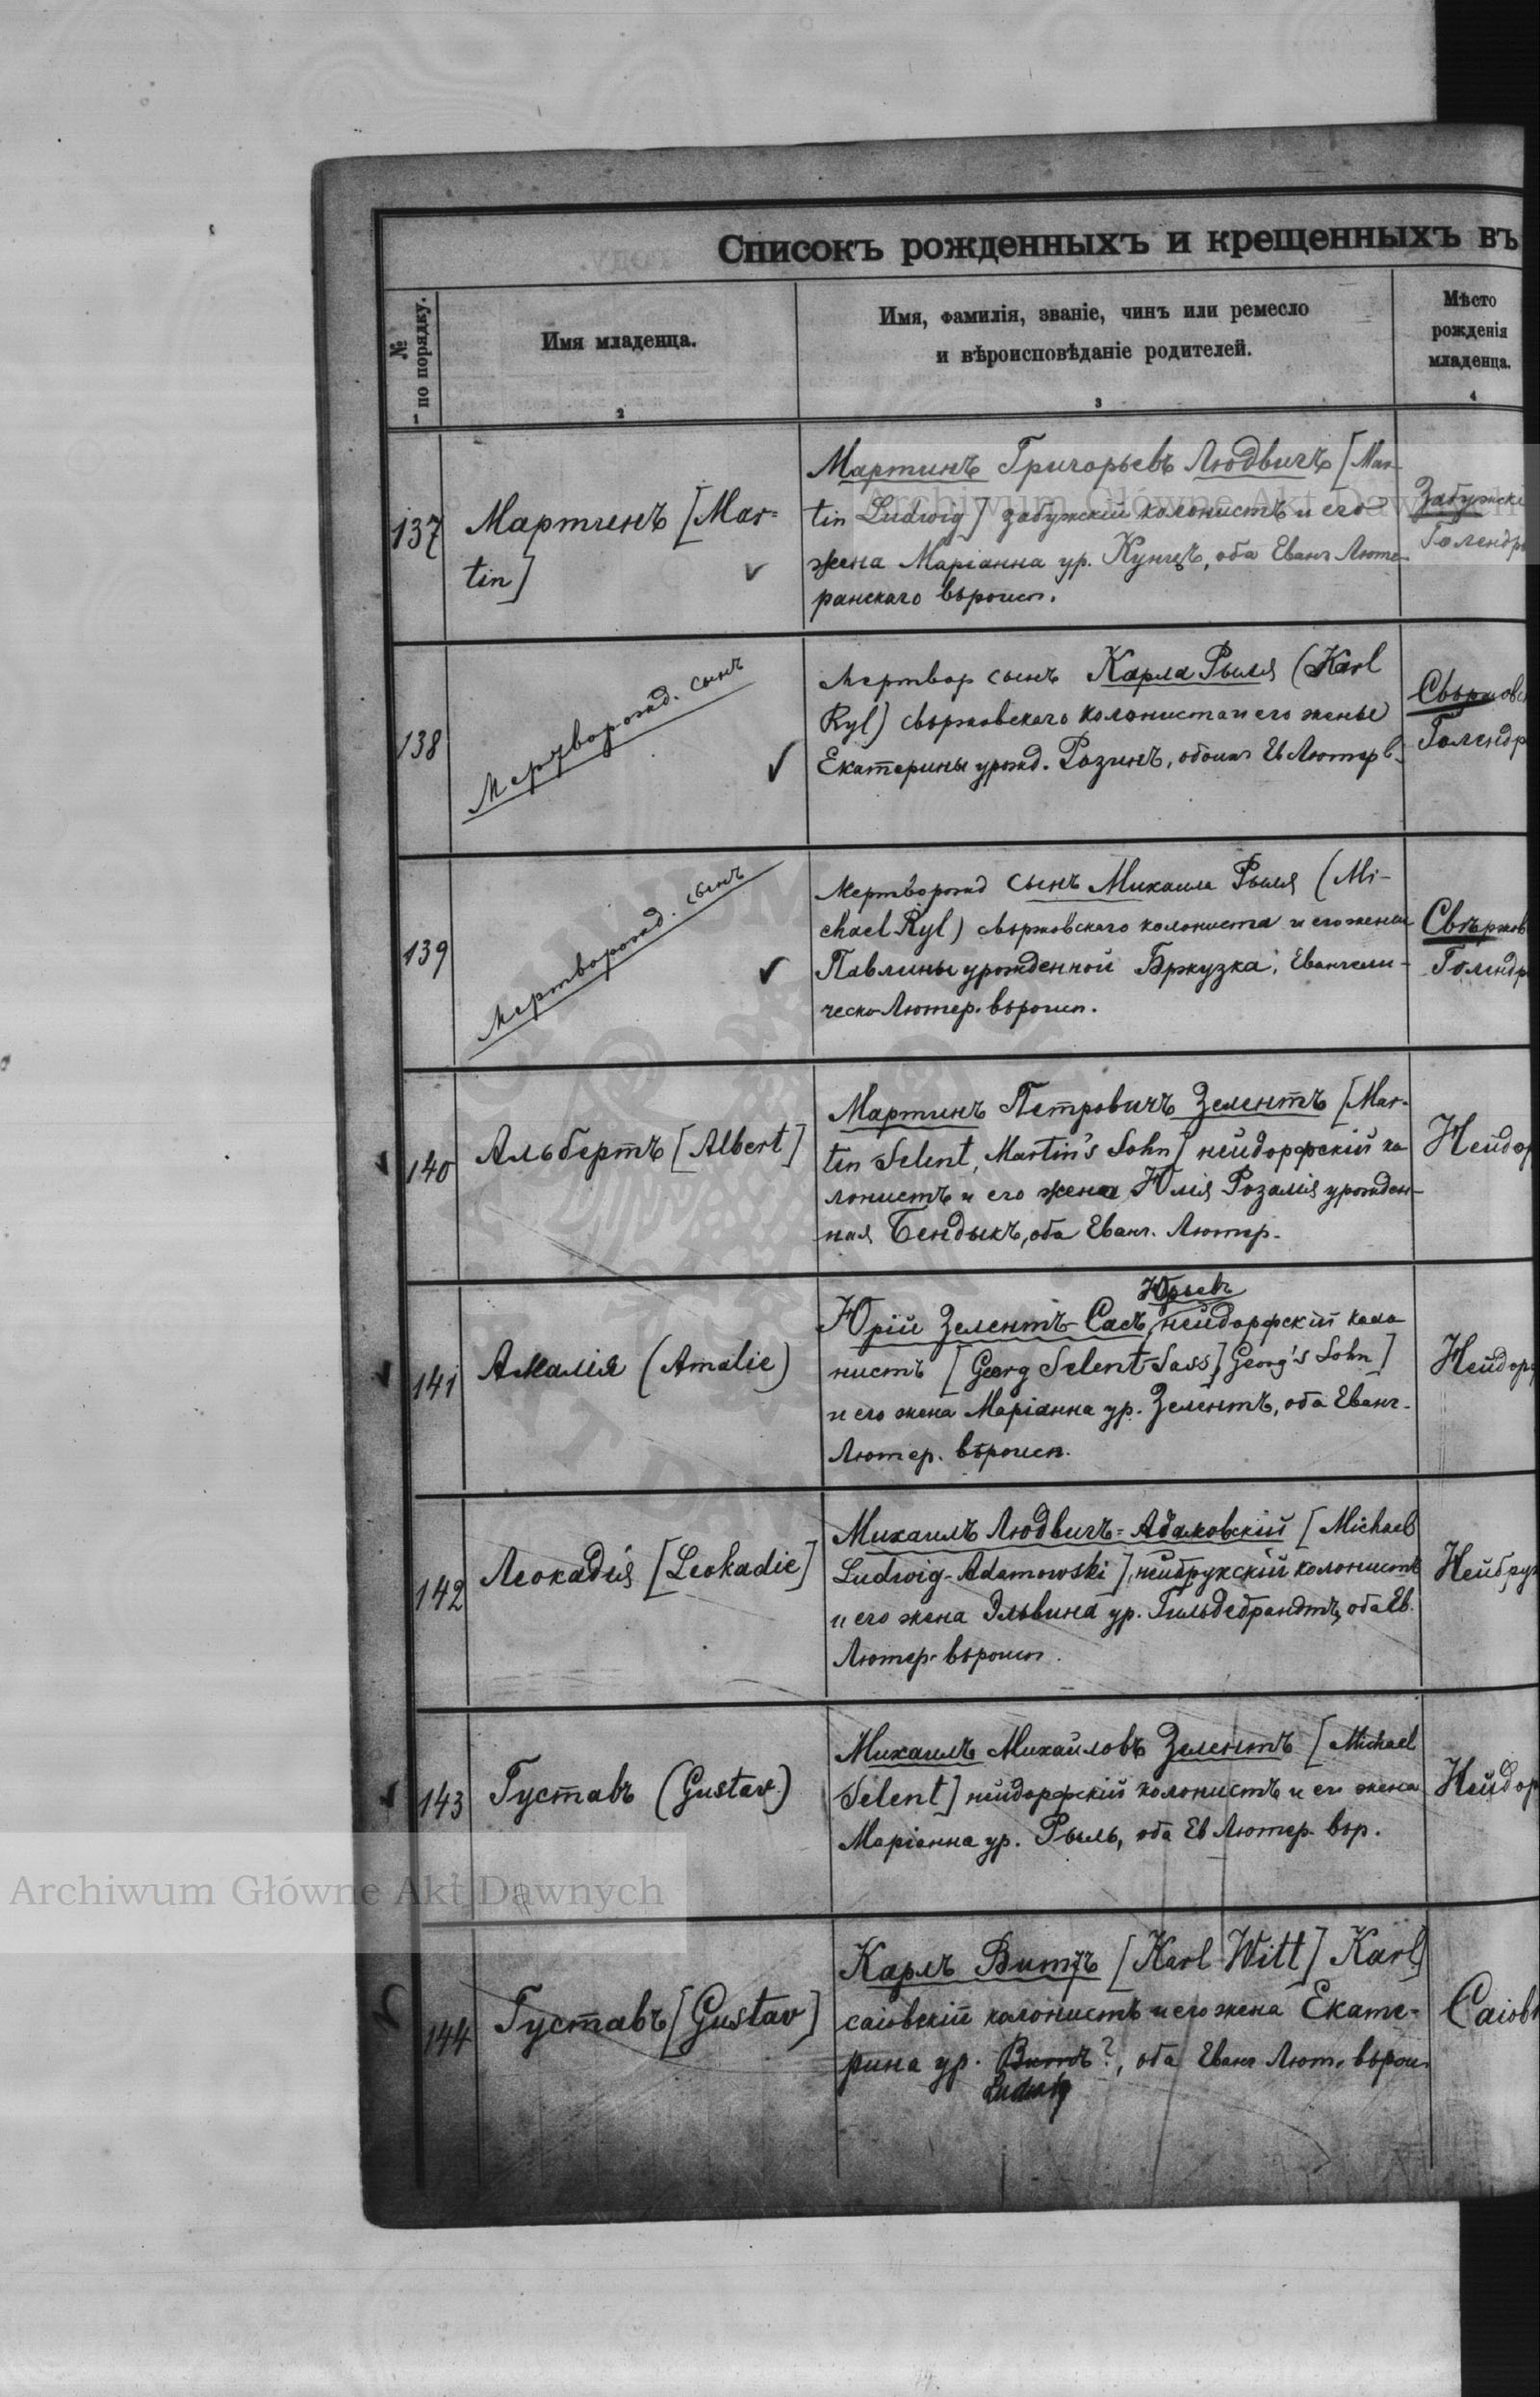 Списокъ рожденныхъ и крещенныхъ въ
№ по порядку.
Имя младенца.
Имя, фамилія, званіе, чинъ или ремесло
и вѣроисповѣданіе родителей.
Мѣсто
рожденія
младенца.
1
2
3
4
137
Мартинъ [Mar=
tin]
Мартинъ Григорьевъ Людвигъ [Mar-
tin Ludwig] забужскій колонистъ и его
жена Маріанна ур. Кунцъ, оба Еванг Люте-
ранскаго вѣроисп.
Забужскі
Голендры
138
Мертворожд. сынъ
Мертвор сынъ Карла Рыля (Karl
Ryl) свѣржовскаго колониста и его жены
Екатерины урожд. Розинъ, обоих Ев Лютер в.
Свѣржовс
Голендр
139
Мертворожд. сынъ
Мертворожд сынъ Михаила Рыля (Mi-
chael Ryl) свѣржовскаго колониста и его жены
Павлины урожденной Бржузка, Евангели-
ческо-Лютер. вѣроисп.
Свѣржов
Голендр
140
Альбертъ [Albert]
Мартинъ Петровичъ Зелентъ [Mar-
tin Selent, Martin's Sohn] нейдорфскій ко
лонистъ и его жена Юлія Розалія урожден-
ная Бендыкъ, оба Еванг. Лютер.
Нейдор
141
Амалія (Amalie)
Юрьевъ
Юрій Зелентъ-Сасъ, нейдорфскій коло
нистъ [Georg Selent-Sass] Georg's Sohn]
и его жена Маріанна ур. Зелентъ, оба Еванг.
Лютер. вѣроисп.
Нейдорф
142
Леокадія [Leokadie]
Михаилъ Людвигъ=Адамовскій [Michael
Ludwig-Adamowski], нейбрукскій колонистъ
и его жена Эльвина ур. Гильдебрандтъ, оба Ев.
Лютер. вѣроисп.
Нейбрук
143
Густавъ (Gustav)
Михаилъ Михайловъ Зелентъ [Michael
Selent] нейдорфскій колонистъ и его жена
Маріанна ур. Рыль, оба Ев Лютер. вѣр.
Нейдор
144
Густавъ [Gustav]
Карлъ Виттъ [Karl Witt] Karl]
саіовскій колонистъ и его жена Екате-
рина ур. Виттъ?, оба Еванг Лют. вѣроис.
Ludwig
Саіовк
Archiwum Główne Akt Dawnych
Archiwum Główne Akt Dawnych